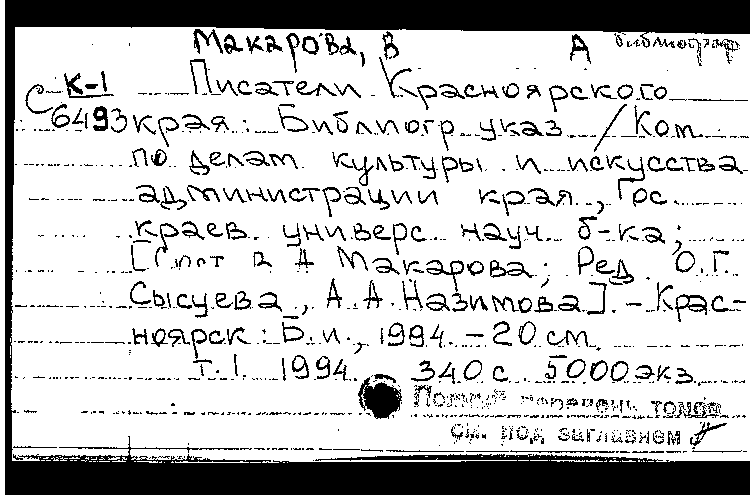 Макарова, В А библиограф
К-1 Писатели Красноярского
С 6493 края: Библиогр. указ. / Ком.
по делам культуры и искусства
администрации края, Гос.
краев. универс. науч. б-ка;
[Сост. В. А. Макарова; Ред. О.Г.
Сысуева, А.А. Назимова]. - Крас-
ноярск: Б.и., 1994. - 20 см.
Т.1. 1994. 340 с. 5000 экз.
Полный перечень томов
см. под заглавием